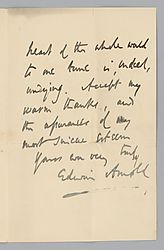 heart of the whole world
to one tune is, indeed,
undying. Accept my
warm thanks, and
the assurances of my
most sincere esteem
Yours very truly,
Edwin Arnold